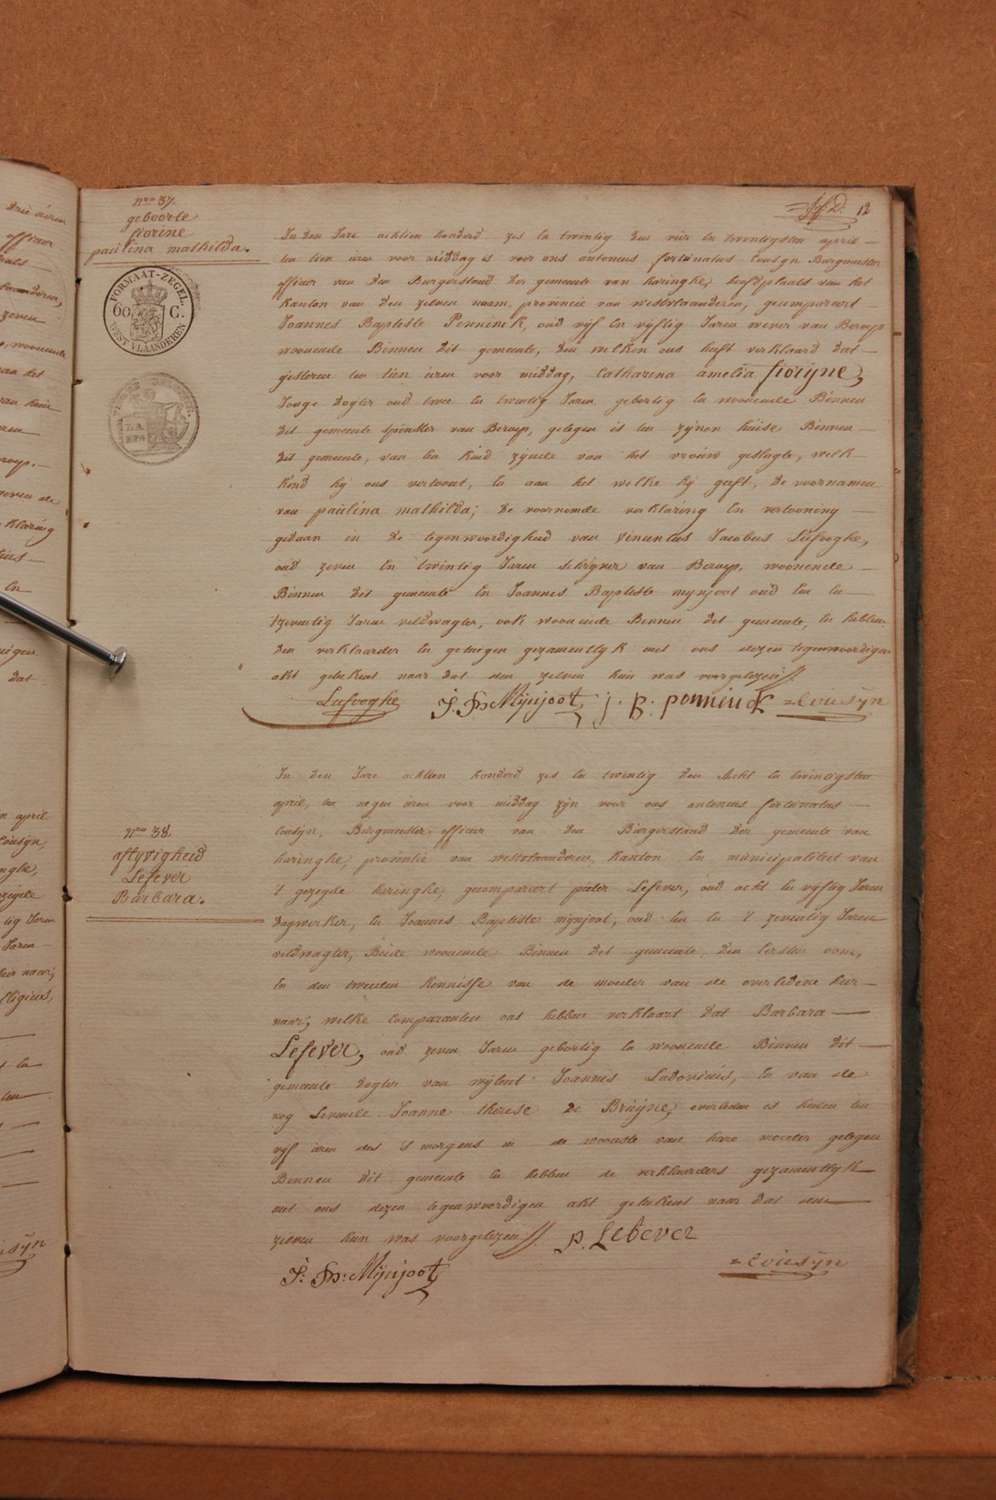 12
nro 37.
geboorte
fiorine
paulina mathilda.
VORMAAT-ZEGEL
60 G.
WEST VLAANDEREN
In den Jare achtien honderd zes en twintig den vier en twintigsten april
ten tien uren voor middag is voor ons antonius fortunatus Cousyn Burgmeester
officier van den Burgerstand der gemeente van haringhe, hoofdplaats van het
kanton van den zelven naam, provincie van westvlaanderen, gecompareert
Joannes Baptiste Penninck, oud vyf en vyftig Jaren wever van Beroep
woonende Binnen dit gemeente, den welken ons heeft verklaard dat
gisteren ten tien uren voor middag, Catharina amelia fiorijne,
Jonge dogter oud twee en twintig Jaren geboortig en woonende Binnen
dit gemeente spinster van Beroep, gelegen is ten zynen huise Binnen
dit gemeente, van een kind zynde van het vrouw geslagte, welk
kind hy ons vertoont, en aan het welke hy geeft, de voornamen
van paulina mathilda; de voornoemde verklaring en vertooning
gedaan in de tegenwoordigheid van Vincentius Jacobus Lafooghe,
oud zeven en twintig Jaren schryver van Beroep, woonende
Binnen dit gemeente en Joannes Baptiste mynjoot oud een en
tzeventig Jaren veldwagter, ook woonende Binnen dit gemeente, en hebben
den verklaarder en getuigen gezamentlyk met ons dezen tegenwoordigen
akt getekent naer dat den zelven hun was voorgelezen
Lafooghe J. Bp. Mijnjoot J. B. pennenck Cousijn
nro 38.
aflyvigheid
Lefever
Barbara.
In den Jare achtien honderd zes en twintig den Acht en twintigsten
april, ten negen uren voor middag zyn voor ons antonius fortunatus
Cousyn, Burgmeester officier van den Burgerstand der gemeente van
haringhe, provintie van westvlaanderen, kanton en municipaliteit van
't gezegde haringhe, gecompareert pieter Lefever, oud acht en vyftig Jaren
dagwerker, en Joannes Baptiste mynjoot, oud een en t zeventig Jaren
veldwagter, Beide woonende Binnen dit gemeente, den eersten oom,
en den tweeden kennisse van de moeder van de overledene hier
naar; welke comparanten ons hebben verklaart dat Barbara
Lefever, oud zeven Jaren geboortig en woonende Binnen dit
gemeente dogter van wylent Joannes Ludovicus, en van de
nog Levende Joanne therese De Bruyne, overleden is heden ten
vyf uren des 's morgens in de wooste van hare moeder gelegen
Binnen dit gemeente en hebben de verklaarders gezamentlyk
met ons dezen tegenwoordigen akt getekent naer dat den
zelven hun was voorgelezen P. Lebever
J. Bp. Mijnjoot Cousijn